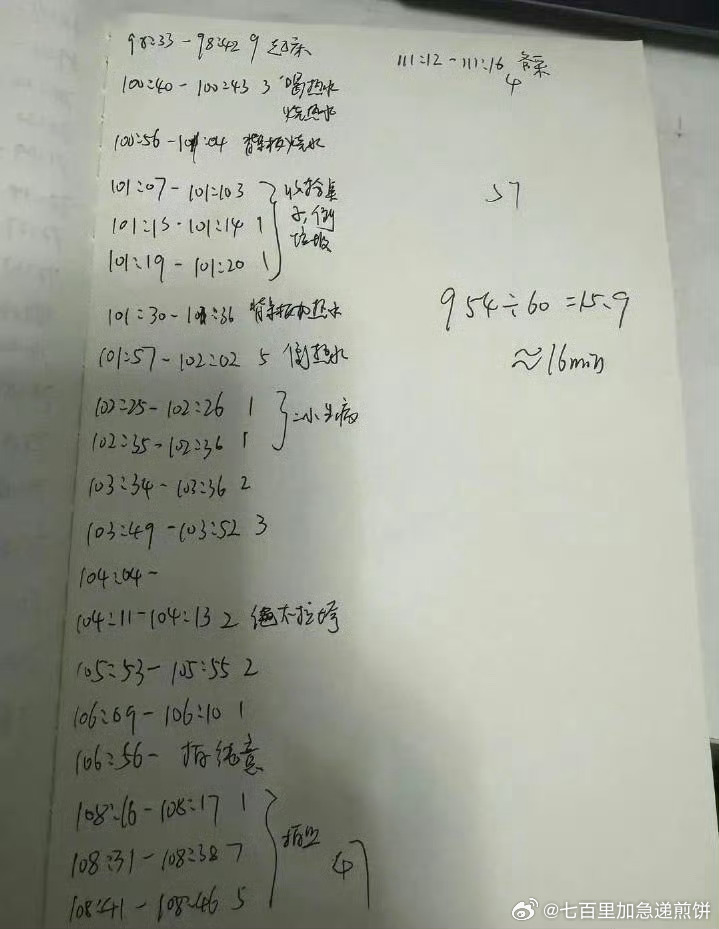 98:33 - 98:42 9 起床
100:40 - 100:43 3 喝热水
烧热水
100:56 - 101:04 背景板烧水
101:07 - 101:103
101:13 - 101:14 1
101:19 - 101:20 1
收拾桌
子,倒
垃圾
101:30 - 101:36 背景板热水
101:57 - 102:02 5 倒热水
102:25 - 102:26 1
102:35 - 102:36 1
103:34 - 103:36 2
103:49 - 103:52 3
104:04 -
104:11 - 104:13 2
105:53 - 105:55 2
106:09 - 106:10 1
106:56 -
108:16 - 108:17 1
108:31 - 108:38 7
108:41 - 108:46 5
47
111:12 - 111:16 备菜
4
57
954÷60=15.9
≈16min
@七百里加急递煎饼